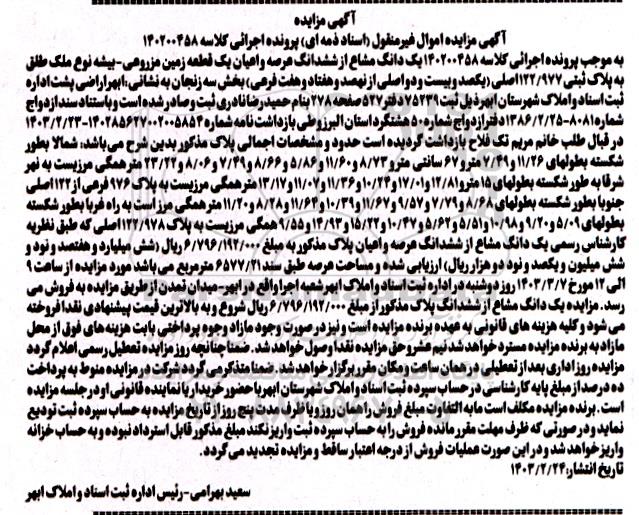 آگهی مزایده
آگهی مزایده اموال غیرمنقول (اسناد ذمه ای) پرونده اجرائی کلاسه ۱۴۰۲۰۰۴۵۸
به موجب پرونده اجرائی کلاسه ۱۴۰۲۰۰۴۵۸ یک دانگ مشاع از ششدانگ عرصه و اعیان یک قطعه زمین مزروعی-بیشه نوع ملک طلق
به پلاک ثبتی ۱۲۲/۹۷۷ اصلی (یکصد و بیست و دو اصلی از نهصد و هفتاد و هفت فرعی) بخش سه زنجان به نشانی: ابهر اراضی پشت اداره
ثبت اسناد و املاک شهرستان ابهر ذیل ثبت ۷۵۲۳۹ دفتر ۵۲۷ صفحه ۲۷۸ بنام حمیدرضا نادری ثبت و صادر شده است و باستناد سند ازدواج
شماره ۸۰۸۱-۱۳۸۶/۲/۲۵ دفتر ازدواج شماره ۵۰ هشتگرد استان البرز و طی بازداشت نامه شماره ۱۴۰۲۸۵۶۲۷۰۰۲۰۰۵۸۵۴-۱۴۰۳/۲/۲۳
در قبال طلب خانم مریم تک فلاح بازداشت گردیده است حدود و مشخصات اجمالی پلاک مذکور بدین شرح می باشد: شمالا بطور
شکسته بطولهای ۱۱/۲۶ و ۷/۴۹ متر و ۶۷ سانتی متر و ۸/۷۳ و ۱۱/۶۰ و ۵/۸۶ و ۸/۶۶ و ۷/۴۹ و ۸/۰۶ و ۲۳/۲۲ متر همگی مرزیست به نهر
شرقا به طور شکسته بطولهای ۱۵ متر و ۱۲/۸۱ و ۱۷/۰۱ و ۱۰/۲۴ و ۱۱/۳۶ و ۱۱/۰۷ و ۱۳/۱۷ متر همگی مرزیست به پلاک ۹۷۶ فرعی از ۱۲۲ اصلی
جنوبا بطور شکسته بطولهای ۸/۶۸ و ۷/۷۹ و ۹/۵۷ و ۱۱/۶۷ و ۱۰/۳۹ و ۱۱/۶۴ و ۸/۲۸ و ۱۱/۲۰ متر همگی مرز است به راه غربا بطور شکسته
بطولهای ۵/۰۹ و ۹/۲۰ و ۱۰/۹۸ و ۵/۵۱ و ۵/۶۲ و ۱۰/۴۷ و ۱۵/۲۲ و ۱۴/۹۳ و ۹/۵۵ همگی مرزیست به پلاک ۱۲۲/۹۷۸ اصلی که طبق نظریه
کارشناس رسمی یک دانگ مشاع از ششدانگ عرصه و اعیان پلاک مذکور به مبلغ ۶/۷۹۶/۱۹۲/۰۰۰ ریال (شش میلیارد و هفتصد و نود و
شش میلیون و یکصد و نود دو هزار ریال) ارزیابی شده و مساحت عرصه طبق سند ۶۵۷۷/۲۱ مترمربع می باشد مورد مزایده از ساعت ۹
الی ۱۲ مورخ ۱۴۰۳/۳/۷ روز دوشنبه در اداره ثبت اسناد و املاک ابهر شعبه اجرا واقع در ابهر-میدان تمدن از طریق مزایده به فروش می
رسد. مزایده یک دانگ مشاع از ششدانگ پلاک مذکور از مبلغ ۶/۷۹۶/۱۹۲/۰۰۰ ریال شروع و به بالاترین قیمت پیشنهادی نقدا فروخته
می شود و کلیه هزینه های قانونی به عهده برنده مزایده است و نیز در صورت وجود مازاد وجوه پرداختی بابت هزینه های فوق از محل
مازاد به برنده مزایده مسترد خواهد شد نیم عشر و حق مزایده نقدا وصول خواهد شد. ضمنا چنانچه روز مزایده تعطیل رسمی اعلام گردد
مزایده روز اداری بعد از تعطیلی در همان ساعت و مکان مقرر برگزار خواهد شد. ضمنا متذکر می گردد شرکت در مزایده منوط به پرداخت
ده درصد از مبلغ پایه کارشناسی در حساب سپرده ثبت اسناد و املاک شهرستان ابهر با حضور خریدار یا نماینده قانونی او در جلسه مزایده
است. برنده مزایده مکلف است مابه التفاوت مبلغ فروش را همان روز و یا ظرف مدت پنج روز از تاریخ مزایده به حساب سپرده ثبت تودیع
نماید و در صورتی که ظرف مهلت مقرر مانده فروش را به حساب سپرده ثبت واریز نکند مبلغ مذکور قابل استرداد نبوده و به حساب خزانه
واریز خواهد شد و در این صورت عملیات فروش از درجه اعتبار ساقط و مزایده تجدید می گردد.
تاریخ انتشار: ۱۴۰۳/۲/۲۴
سعید بهرامی-رئیس اداره ثبت اسناد و املاک ابهر